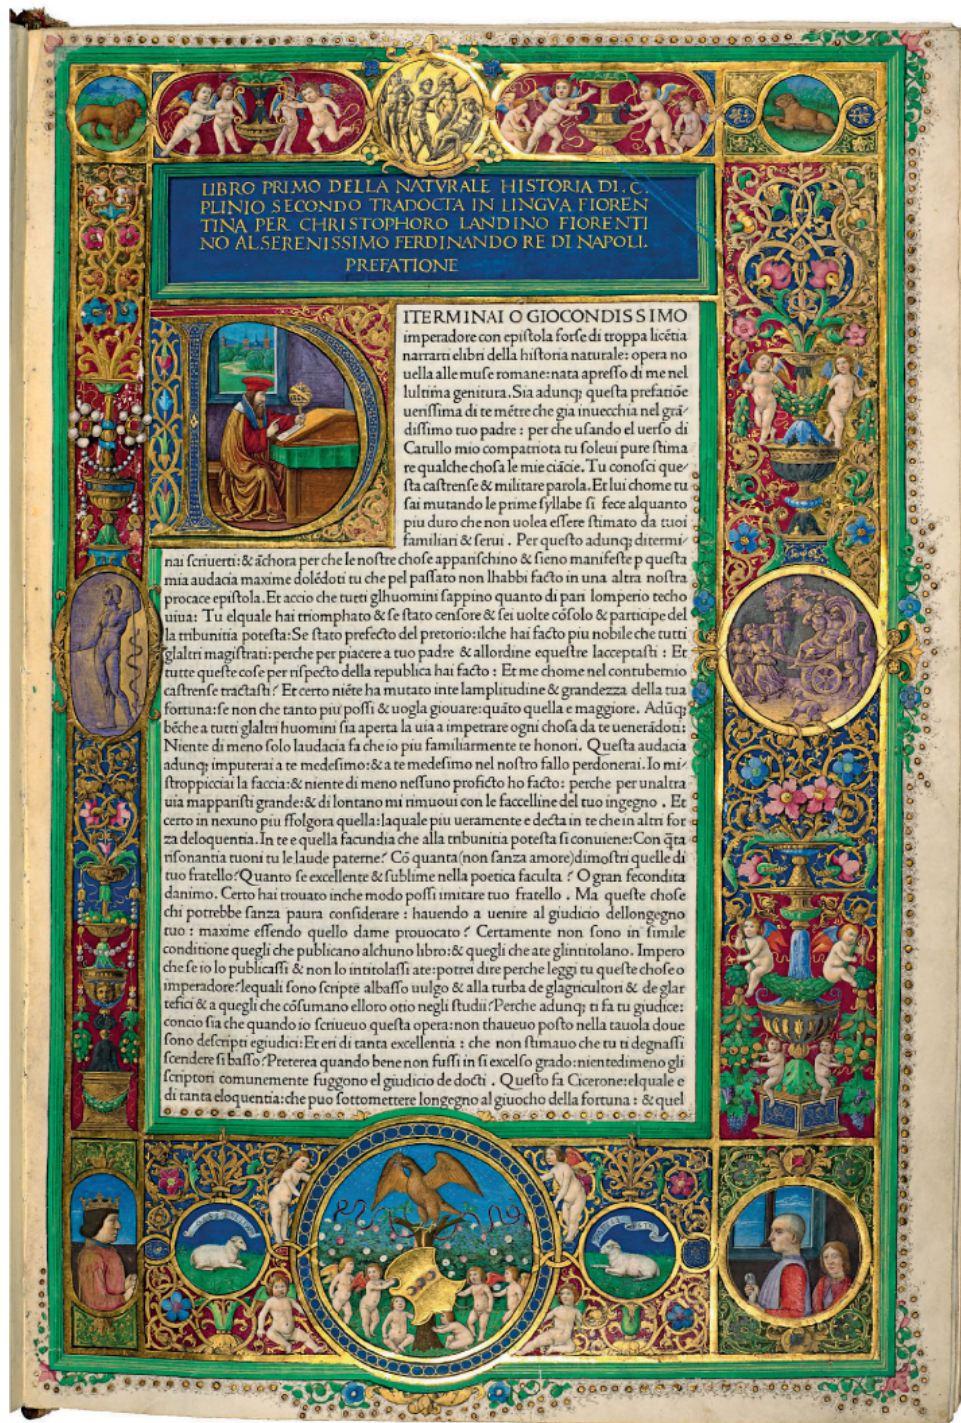 LIBRO PRIMO DELLA NATVRALE HISTORIA DI. C.
PLINIO SECONDO TRADOCTA IN LINGVA FIOREN
TINA PER CHRISTOPHORO LANDINO FIORENTI
NO AL SERENISSIMO FERDINANDO RE DI NAPOLI.
PREFATIONE
DITERMINAI O GIOCONDISSIMO
imperadore con epistola forse di troppa licẽtia
narrarti elibri della historia naturale: opera no
uella alle muse romane: nata apresso di me nel
lultima genitura. Sia adunq; questa prefatiõe
uerissima di te mẽtre che gia inuecchia nel grã
dissimo tuo padre: per che usando el uerso di
Catullo mio compatriota tu soleui pure stima
re qualche chosa le mie ciãcie. Tu conosci que
sta castrense & militare parola. Et lui chome tu
sai mutando le prime syllabe si fece alquanto
piu duro che non uolea essere stimato da tuoi
familiari & serui. Per questo adunq; ditermi
nai scriuerti: & ãchora per che le nostre chose apparischino & sieno manifeste p questa
mia audacia maxime dolẽdoti tu che pel passato non lhabbi facto in una altra nostra
procace epistola. Et accio che tutti glhuomini sappino quanto di pari lomperio techo
uiua: Tu elquale hai triomphato & se stato censore & sei uolte cõsolo & participe del
la tribunitia potesta: Se stato prefecto del pretorio: ilche hai facto piu nobile che tutti
glaltri magistrati: perche per piacere a tuo padre & allordine equestre lacceptasti: Et
tutte queste cose per rispecto della republica hai facto: Et me chome nel contubernio
castrense tractasti? Et certo niẽte ha mutato inte lamplitudine & grandezza della tua
fortuna: se non che tanto piu possi & uogla giouare: quãto quella e maggiore. Adũq;
bẽche a tutti glaltri huomini sia aperta la uia a impetrare ogni chosa da te uenerãdoti:
Niente di meno solo laudacia fa che io piu familiarmente te honori. Questa audacia
adunq; imputerai a te medesimo: & a te medesimo nel nostro fallo perdonerai. Io mi
stropicciai la faccia: & niente di meno nessuno profecto ho facto: perche per unaltra
uia mapparisti grande: & di lontano mi rimuoui con le faccelline del tuo ingegno. Et
certo in nexuno piu ffolgora quella: laquale piu ueramente e decta in te che in altri for
za deloquentia. In te e quella facundia che alla tribunitia potesta si conuiene: Con q̃ta
risonantia tuoni tu le laude paterne? Cõ quanta (non sanza amore) dimostri quelle di
tuo fratello? Quanto se excellente & sublime nella poetica faculta? O gran fecondita
danimo. Certo hai trouato inche modo possi imitare tuo fratello. Ma queste chose
chi potrebbe sanza paura considerare: hauendo a uenire al giudicio dellongegno
tuo: maxime essendo quello dame prouocato? Certamente non sono in simile
conditione quegli che publicano alchuno libro: & quegli che ate glintitolano. Impero
che se io lo publicassi & non lo intitolassi ate: potrei dire perche leggi tu queste chose o
imperadore? lequali sono scripte albasso uulgo & alla turba de glagricultori & de glar
tefici & a quegli che cõsumano elloro otio negli studii? Perche adunq; ti fa tu giudice:
concio sia che quando io scriueuo questa opera: non thaueuo posto nella tauola doue
sono descripti egiudici: Et eri di tanta excellentia: che non stimauo che tu ti degnassi
scendere si basso? Preterea quando bene non fussi in si excelso grado: nientedimeno gli
scriptori comunemente fuggono el giudicio de docti. Questo fa Cicerone: elquale e
di tanta eloquentia: che puo sottomettere longegno al giuocho della fortuna: & quel